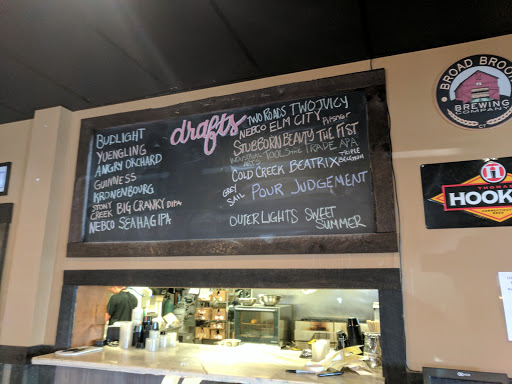 drafts
BUDLIGHT
YUENGLING
ANGRY ORCHARD
GUINNESS
KRONENBOURG
STONY CREEK BIG CRANKY DIPA
NEBCO SEAHAG IPA
TWO ROADS TWO JUICY
NEBCO ELM CITY PILSNER
STUBBORN BEAUTY THE FIST
TRADE APA
COLD CREEK BEATRIX
GREY SAIL POUR JUDGEMENT
OUTER LIGHTS SWEET
SUMMER
BROAD BROOK
BREWING
COMPANY
CT
H
THOMAS
HOOK